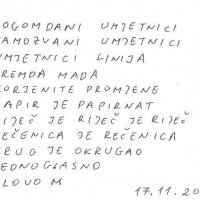 OGOMDANI UMJETNICI
AMOZVANI UMJETNICI
UMJETNICI LINIJA
REMDA MADA
ORJENITE PROMJENE
APIR JE PAPIRNAT
IJEČ JE RIJEČ JE RIJEČ
EČENICA JE REČENICA
RUG JE OKRUGAO
EDNOGLASNO
LOVO M
17.11.20